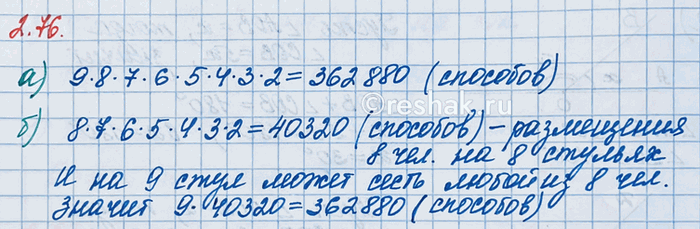 2.76.
а) 9·8·7·6·5·4·3·2=362880 (способов)
©reshak.ru
б) 8·7·6·5·4·3·2=40320 (способов) – размещения
8 чел. на 8 стульях
И на 9 стул может сесть любой из 8 чел.
Значит 9·40320=362880 (способов)